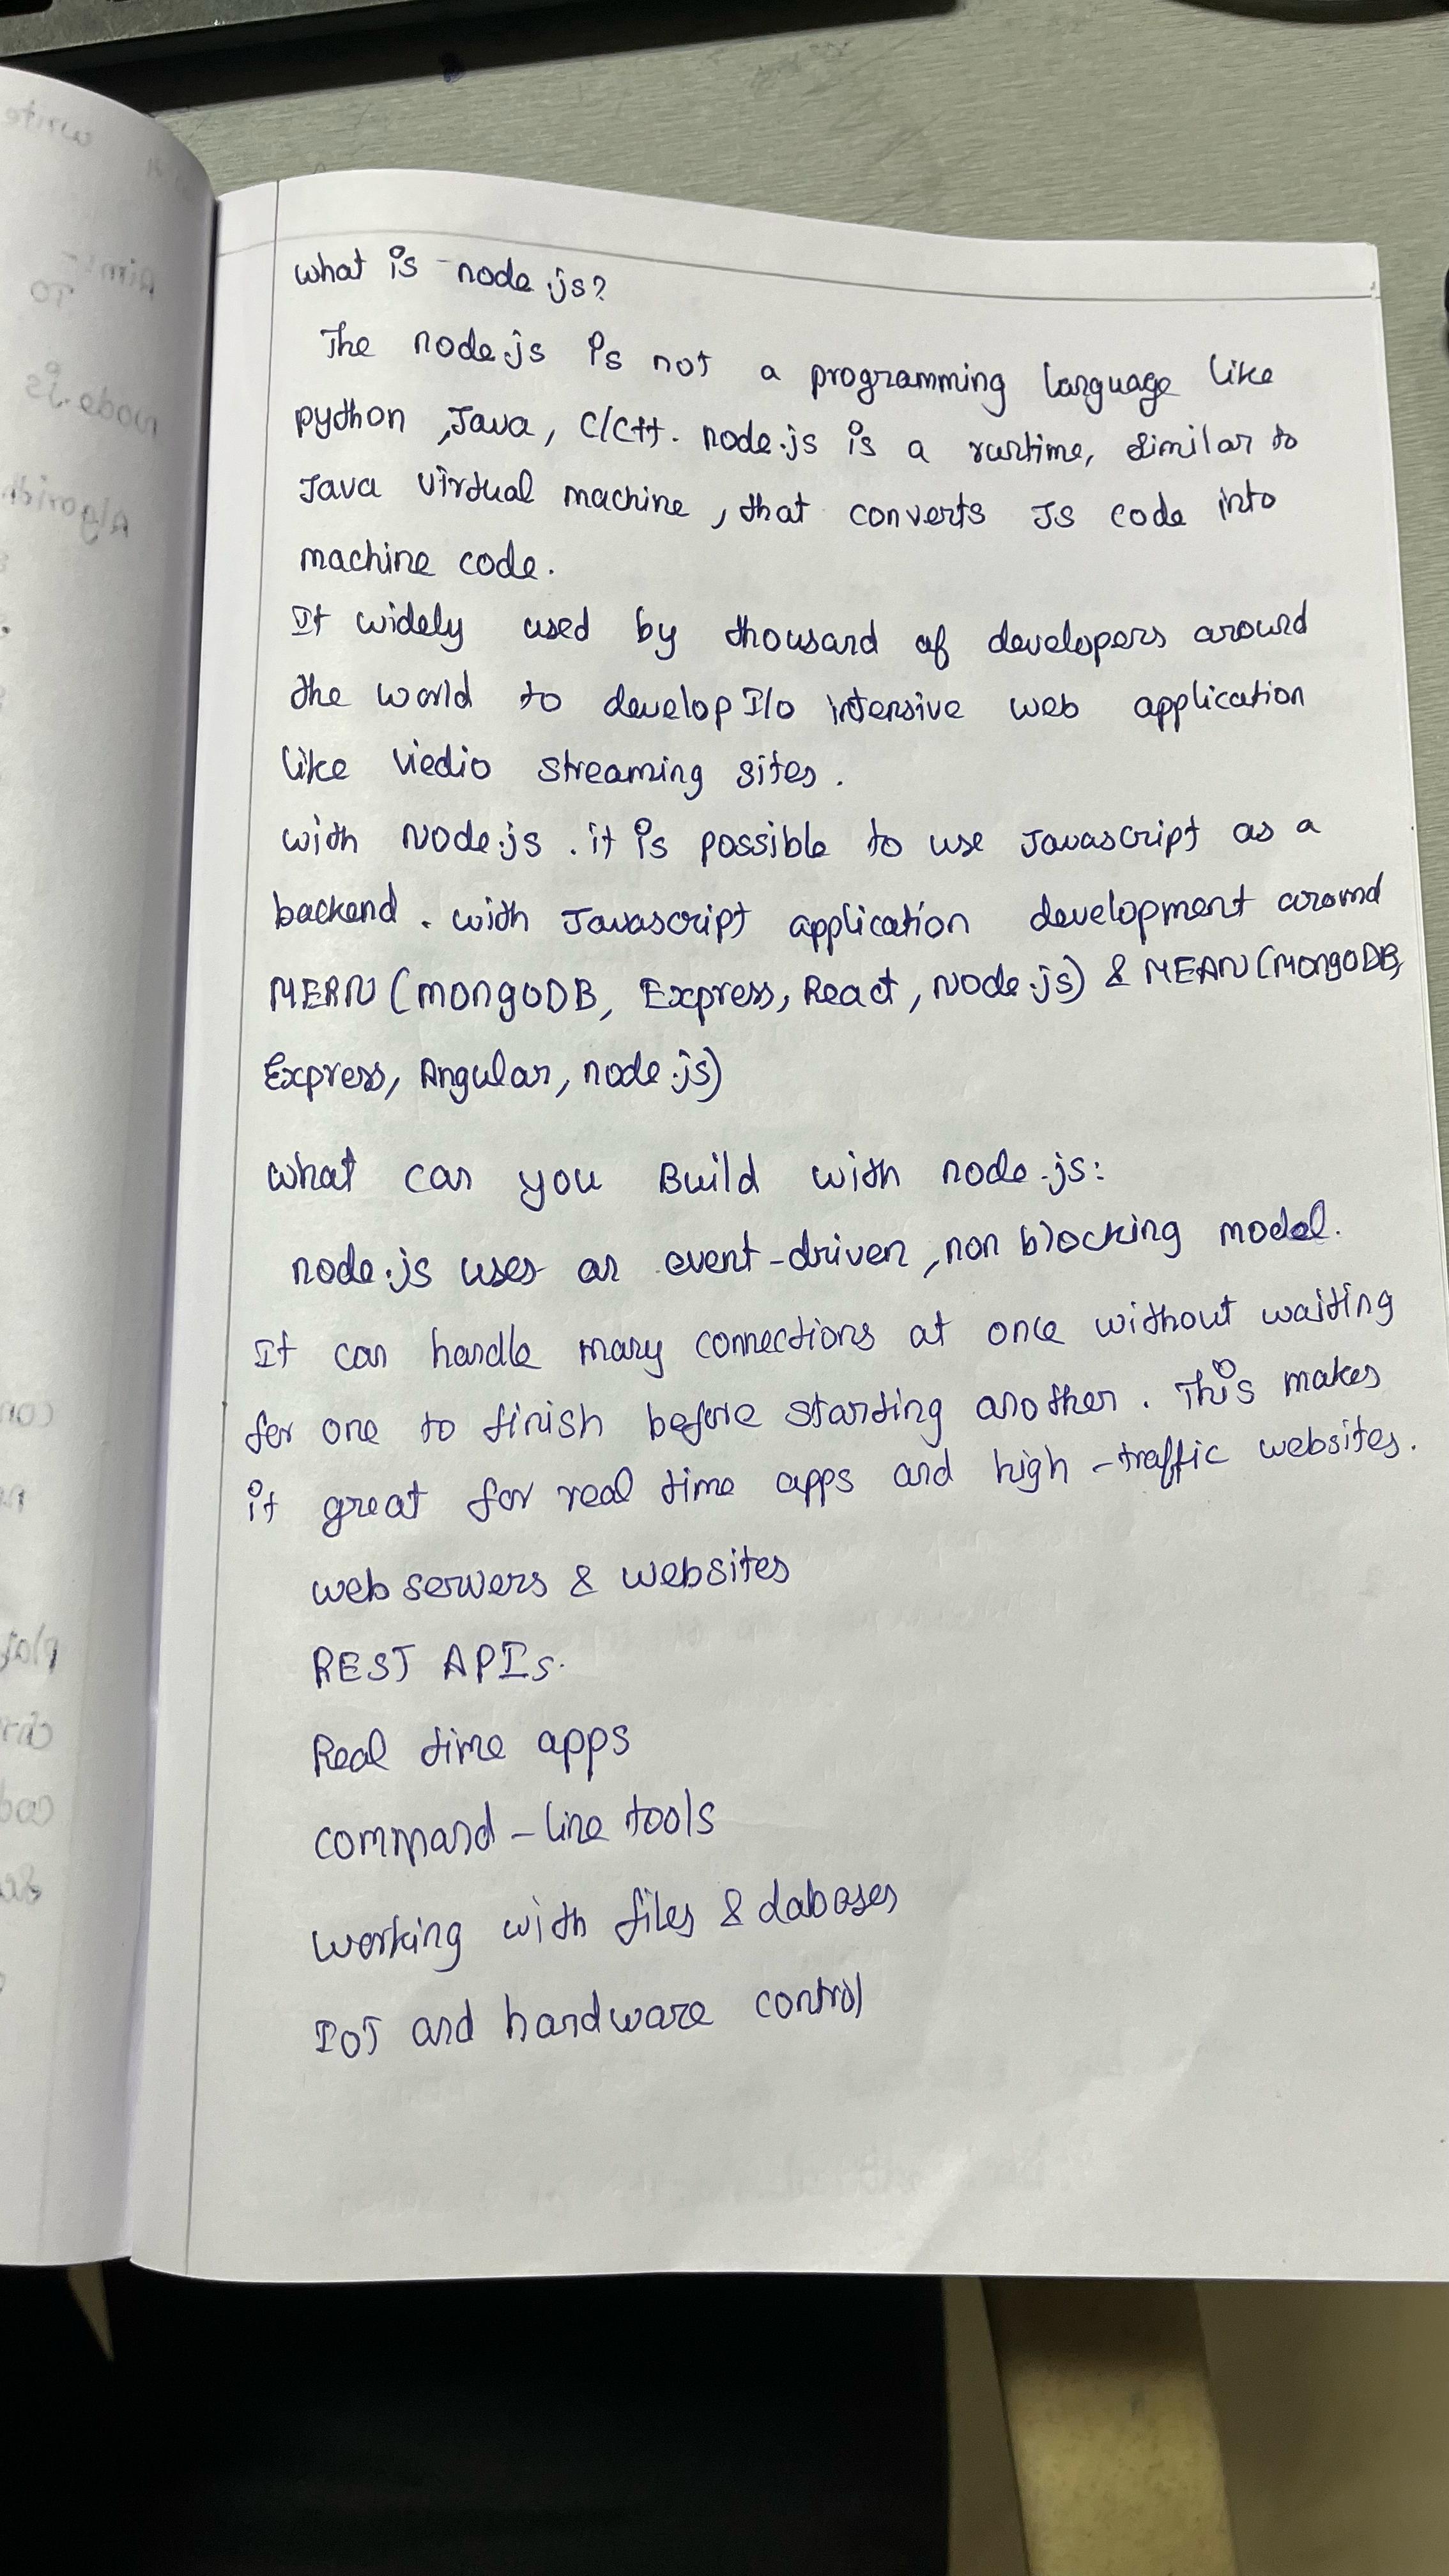 what is node.js?
The node.js is not a programming language like
python, Java, C/C++. node.js is a runtime, similar to
Java virtual machine, that converts JS code into
machine code.
It widely used by thousand of developers around
the world to develop I/o intensive web application
like viedio streaming sites.
with Node.js. it is possible to use Javascript as a
backend. with Javascript application development around
MERN (mongoDB, Express, React, Node.js) & MEAN (MongoDB,
Express, Angular, node.js)
what can you Build with node.js:
node.js uses an event-driven, non blocking model.
It can handle many connections at once without waiting
for one to finish before starting another. This makes
it great for real time apps and high-traffic websites.
web servers & websites
REST APIs.
Real time apps
command-line tools
working with files & dabases
IoT and hardware control